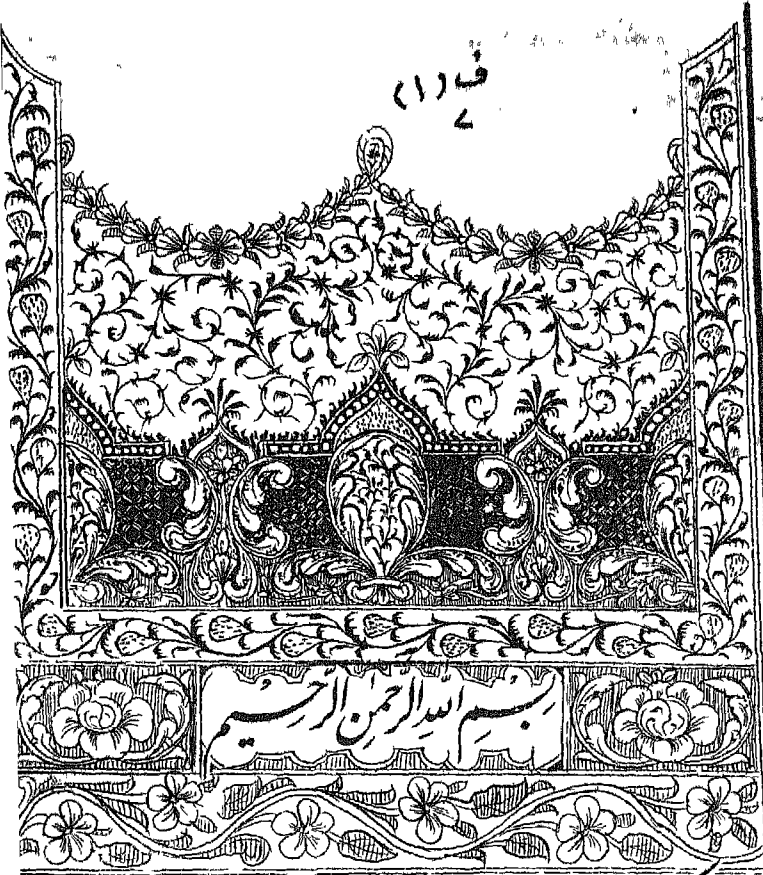 ف (١)
بِسْمِ اللهِ الرَّحْمٰنِ الرَّحِيْمِ